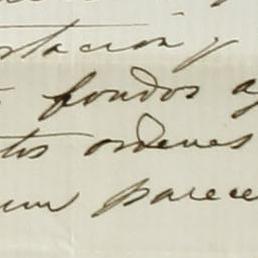 tacion y
fondos a
tos ordenes
um parece